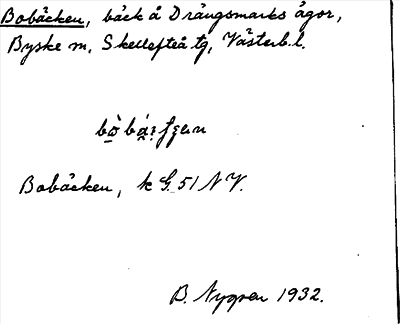 Bobäcken, bäck å Drängsmarks ägor,
Byske sn, Skellefteå tg, Västerb. l.
Bobäcken, k G. 51 N V.
B. Nygren 1932.